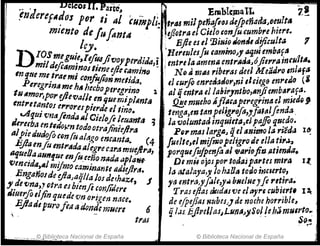 Deicos II. Parte,
endereçados por ti al cumpli-
miento de su santa
ley.
DIOS me guie, Iesus si voy perdida,
mil descaminos tiene este camino
en que me trae mi confusion metida.
Peregrina me ha hecho peregrino 1
tu amor, por este valle en que mi planta
entretantos errores pierde el tino.
Aqui vna senda al Cielo se leuanta 3
derecha en todo, y en todo otra siniestra
al pie dudoso con su alago encanta. (4
Esta en su entrada alegre cara muestra,
aquella aunque en su ceño nada aplane
vencida, al mismo caminante adiestra.
Engaños de esta, aquella los dehaze, 5
y de vna, y otra es bien se considere
diuerso el fin que de vn origen nace.
Esta de puro fea a donde muere 6
tras
Emblema II. 78
tras mil peñascos despeñada, oculta
esotra el Cielo con su cumbre hiere.
Este es el Biuio donde dificulta 7
Hercules su camino, y aqui embaça
entre la amena entrada, ò fierra inculta.
No à mas riberas deel Meādro enlaça
el curso enredador, ni el ciego enredo (8
al q̃ entra el labiryntho, ansi embaraça.
Que mucho ò flaca peregrina el miedo 9
tenga, en tan peligrosa, y fatal senda
la voluntad inquieta, el passo quedo.
Por mas larga, q̃ el animo la riēda 10
suelte, el mismo peligro de ella tira,
porque suspensa al vario fin atienda.
De mis ojos por todas partes mira 11
la atalaya, y lo halla todo incierto,
ya entra, y sale, ya buelue, y se retira.
Tras estas dudas ve el ayre cubierto 12
de espessas nubes, y de noche horrible,
q̃ las Estrellas, Luna, y Sol le hā muerto.
So-
© Biblioteca Nacional de España
© Biblioteca Nacional de España